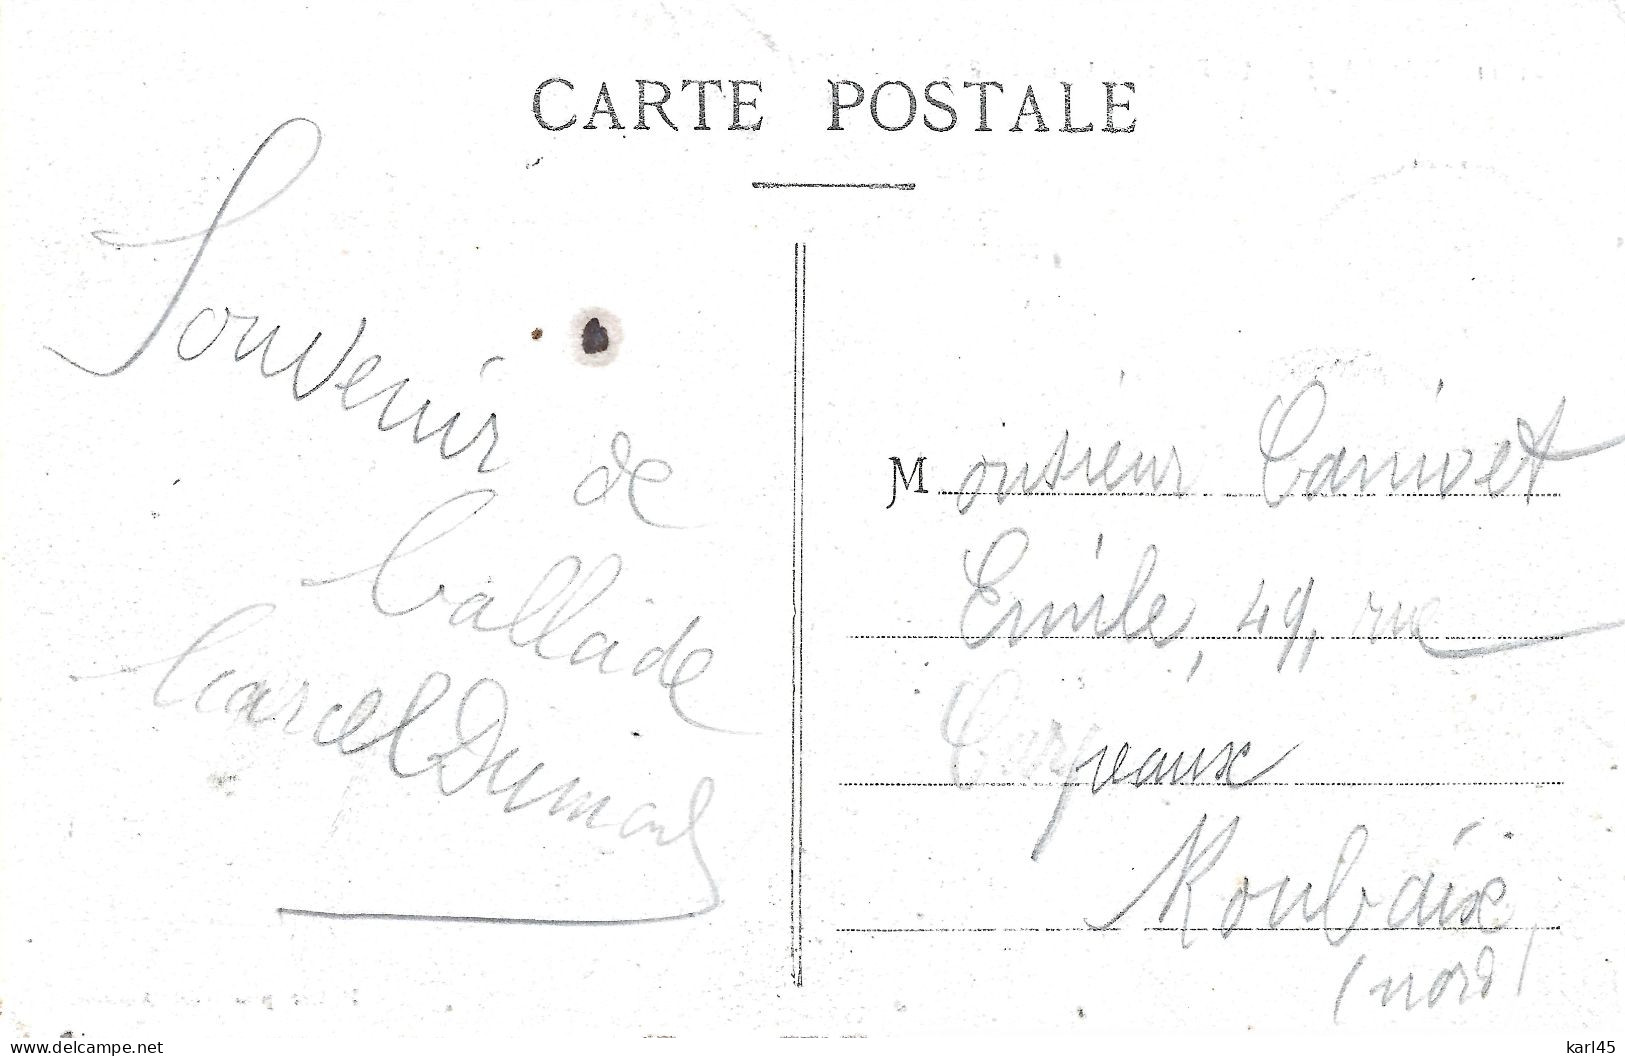 CARTE POSTALE
Souvenir
de
ballade
Marcel Dumont
Monsieur Canivet
Emile, 49, rue
Roubaix
(nord)
delcampe.net
karl45